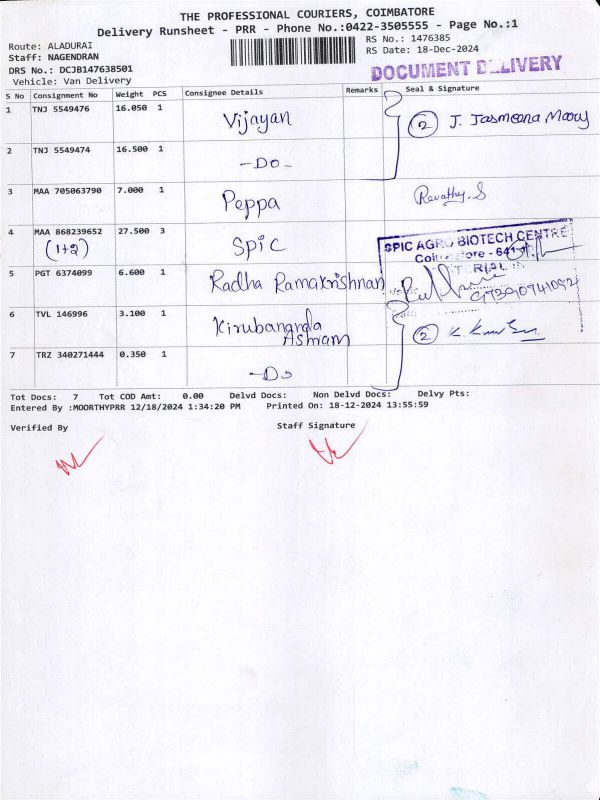 THE PROFESSIONAL COURIERS, COIMBATORE
Delivery Runsheet - PRR - Phone No.:0422-3505555 - Page No.:1
Route: ALADURAI
RS No.: 1476385
Staff: NAGENDRAN
RS Date: 18-Dec-2024
DRS No.: DCJB147638501
DOCUMENT DELIVERY
Vehicle: Van Delivery
S No Consignment No Weight PCS Consignee Details Remarks Seal & Signature
1 TNJ 5549476 16.050 1 Vijayan
2 J. Jasmeena Moory
2 TNJ 5549474 16.500 1 -Do-
3 MAA 705063790 7.000 1 Peppa Revathy.S
4 MAA 868239652 27.500 3 Spic
(1+2)
SPIC AGRO BIOTECH CENTRE
Coimbatore - 641
5 PGT 6374099 6.600 1 Radha Ramakrishnan
6 TVL 146996 3.100 1 Kirubananda
Ashram
2
7 TRZ 340271444 0.350 1 -Do
Tot Docs: 7 Tot COD Amt: 0.00 Delvd Docs: Non Delvd Docs: Delvy Pts:
Entered By :MOORTHYPRR 12/18/2024 1:34:20 PM Printed On: 18-12-2024 13:55:59
Verified By Staff Signature